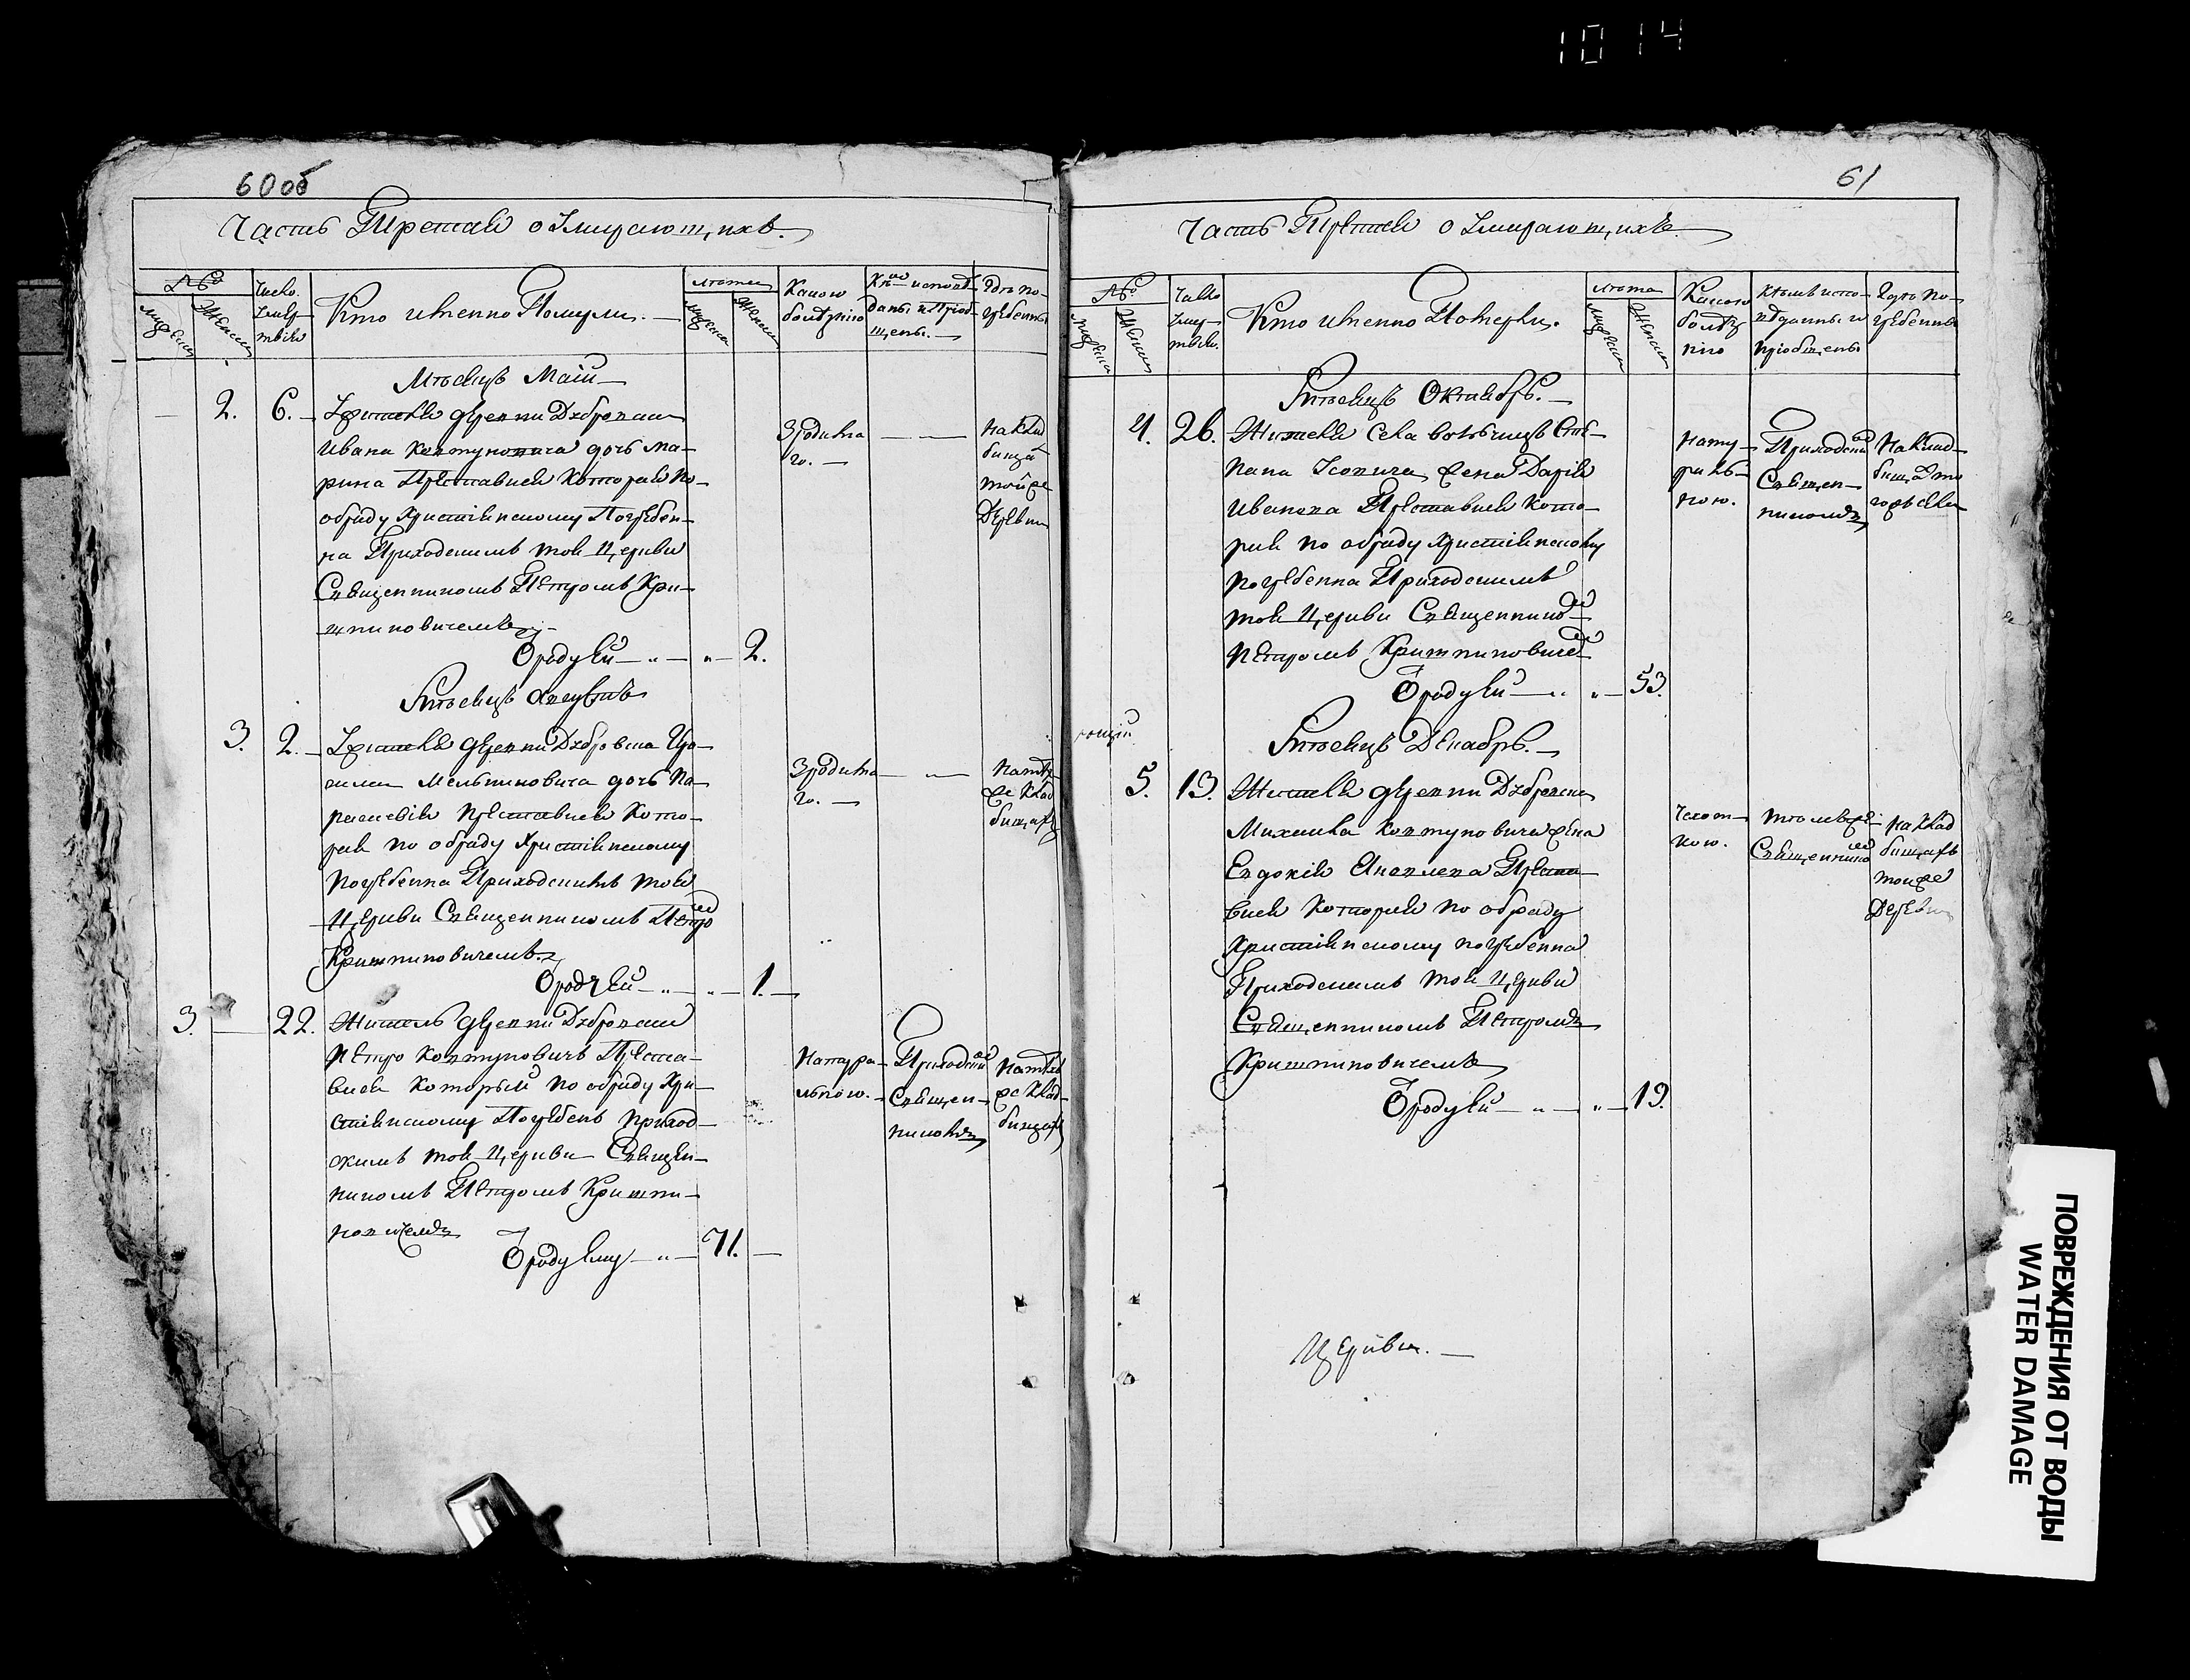 1014
60об
Часть Третая о Умирающихъ.
№
мужеска
Женска
Число
Умер
твія
Кто имено Помумли.
лѣта
мужеска
Женска
Какою
болѣзнію
Кѣмъ исповѣ
даны и Пріоб
щены.
Гдѣ по-
гребенны
Мѣсецъ Маій
2. 6.
Жителя деревни
Ивана Колтуновича дочь Ма-
рина Преставися Котораю По
обряду Христіянскому Погребен-
на Приходскимъ той Церкви
Священникомъ Петромъ Кри-
штиновичемъ
Ӧроду Ей 2.
Зродима
го.
на Клад
бищѣ
тойже
Деревни
Мѣсецъ Августъ
3. 2.
Жителя деревни
Мельниковича дочь Па-
раскевія Преставися Кото-
рая по обряду Христіянскому
Погребенна Приходскимъ той
Церкви Священникомъ Петро
Криштиновичемъ
Ӧроду Ей 1.
Зродима
го.
на тѣх
же Клад
бищахъ
3. 22.
Житель деревни
Петро Колтуновичъ Преста-
вися который по обряду Хри-
стіянскому Погребенъ Приход
скимъ той Церкви Священ-
никомъ Петромъ Кришти-
новичемъ
Ӧроду Ему 71.
Натура-
льною.
Приходскій
Священ-
никомъ
на тѣхъ
же Клад-
бищахъ
61
Часть Третая о Умирающихъ
№
мужеска
Женска
Число
Умер
твія
Кто имено Померли.
лѣта
мужеска
Женска
Какою
болѣз
нію
Кѣмъ испо-
вѣданны и
пріобщены
Гдѣ По-
гребенны
Мѣсецъ Октябрь.
4. 26.
Жителя села Сте-
пана жена Дарія
Иванова Преставися Кото-
рая по обряду Христіянскому
погребенна Приходскимъ
той Церкви Священнико
Петромъ Криштиновиче
Ӧроду Ей 53.
Нату-
раль-
ною.
Приходскій
Священ-
никомъ
На Клад-
бищѣ то
гожъ села
Мѣсецъ Декабрь.
5. 13.
Жителя деревни
Михаила Колтуновича жена
Евдокія Преста
вися Которая по обряду
Христіянскому погребенна
Приходскимъ той Церкви
Священникомъ Петромъ
Криштиновичемъ
Ӧроду Ей 19.
Чахот-
кою.
тѣмъже
Священнико
на Клад
бищахъ
тоиже
Деревни
Церкви.
ПОВРЕЖДЕНИЯ ОТ ВОДЫ
WATER DAMAGE